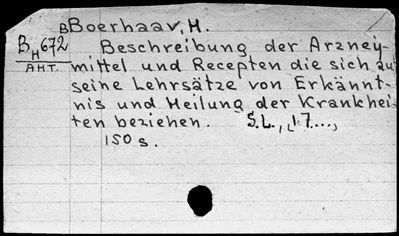 BBoerhaav, H.
BH672 Beschreibung der Arzney-
AHT. mittel und Recepten die sich au
seine Lehrsätze von Erkännt-
nis und Heilung der Krankhei-
ten beziehen. S.L., 17...,
150 s.